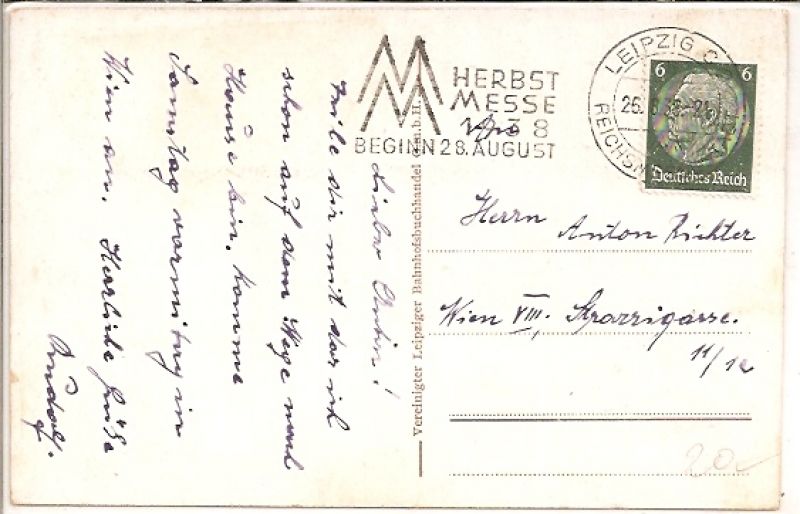 Lieber Anton!
teile dir mit das ich
schon auf dem Wege nach
Hause bin, komme
Samstag vormittag in
Wien an. Herzliche Grüße
Rudolf.
Vereinigter Leipziger Bahnhofsbuchhandel G.m.b.H.
HERBST
MESSE
1938
BEGINN 28. AUGUST
LEIPZIG C
REICHSM
6 6
Deutsches Reich
Herrn Anton Richter
Wien VIII. Strozzigasse.
20